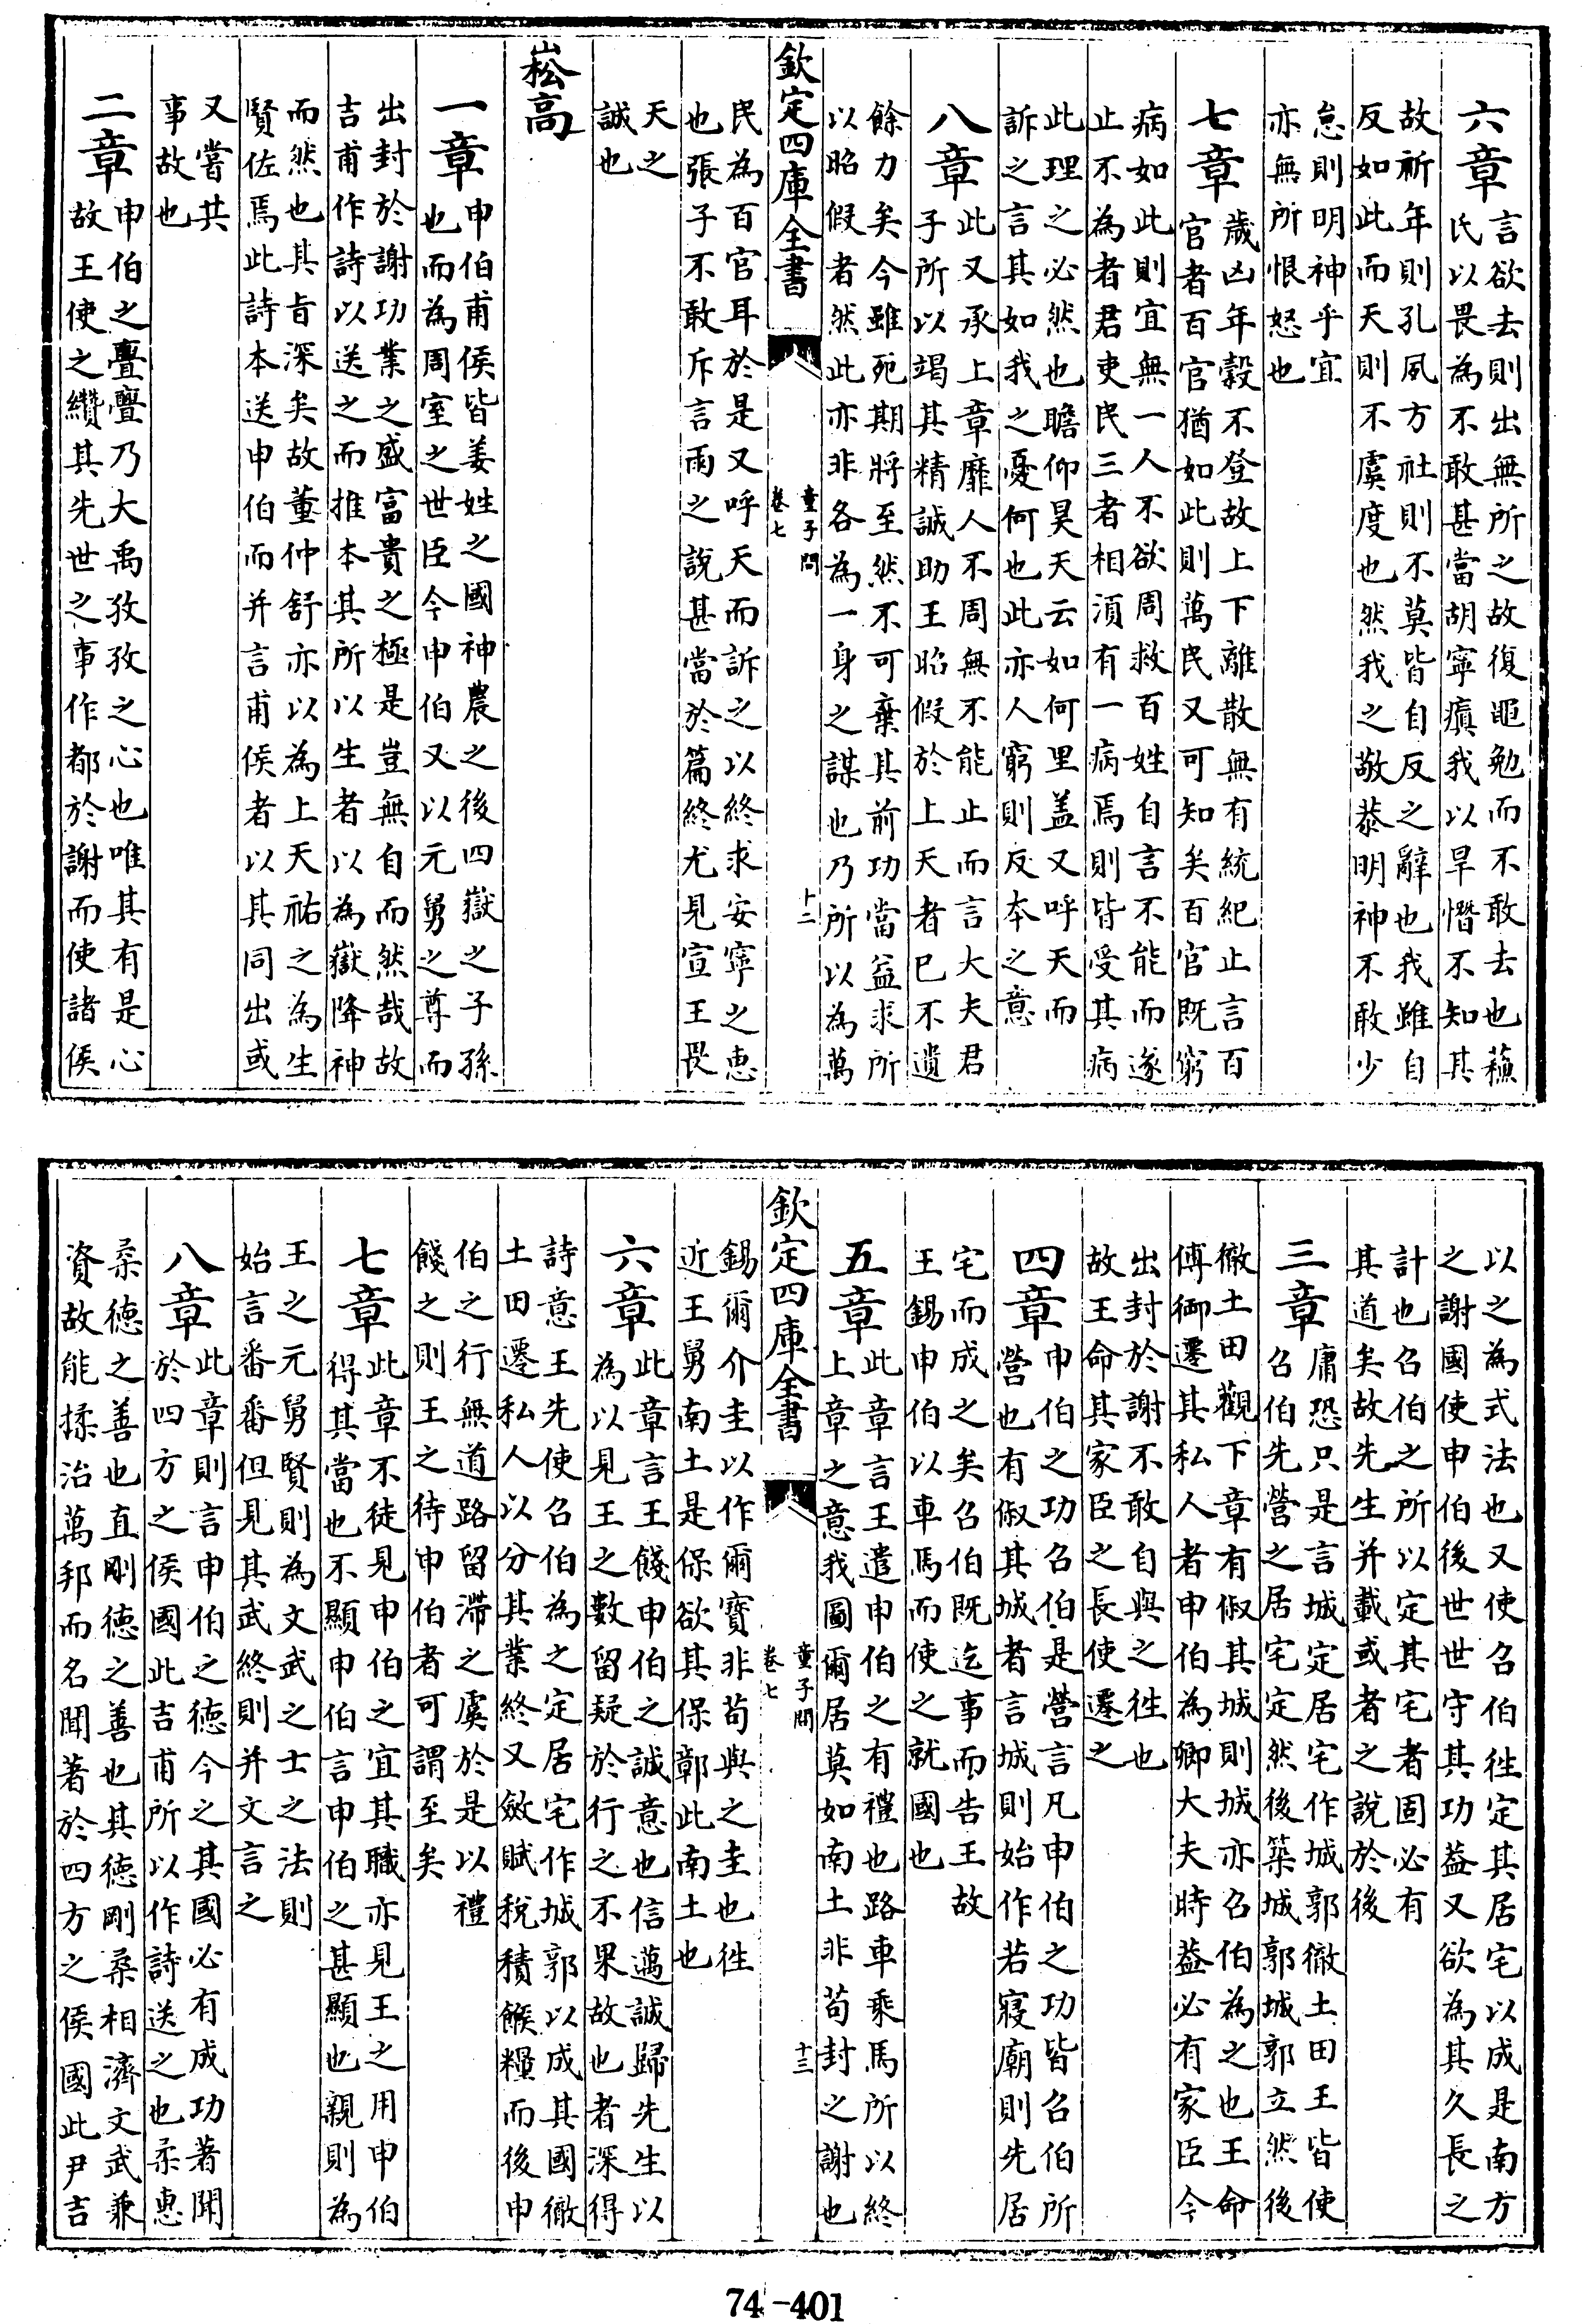 六章言欲去則出無所之故復黽勉而不敢去也蘓
氏以畏為不敢甚當胡寜瘨我以旱憯不知其
故祈年則孔夙方社則不莫皆自反之辭也我雖自
反如此而天則不虞度也然我之敬恭明神不敢少
怠則明神乎宜
亦無所恨怒也
七章歲凶年穀不登故上下離散無有統紀止言百
官者百官猶如此則萬民又可知矣百官既窮
病如此則宜無一人不欲周救百姓自言不能而遂
止不為者君吏民三者相湏有一病焉則皆受其病
此理之必然也瞻仰昊天云如何里盖又呼天而
訴之言其如我之憂何也此亦人窮則反本之意
八章此又承上章靡人不周無不能止而言大夫君
子所以竭其精誠助王昭假於上天者已不遺
餘力矣今雖死期將至然不可棄其前功當益求所
以昭假者然此亦非各為一身之謀也乃所以為萬
欽定四庫全書
童子問
卷七
十二
民為百官耳於是又呼天而訴之以終求安寜之惠
也張子不敢斥言雨之說甚當於篇終尤見宣王畏
天之
誠也
崧高
一章申伯甫侯皆姜姓之國神農之後四嶽之子孫
也而為周室之世臣今申伯又以元舅之尊而
出封於謝功業之盛富貴之極是豈無自而然哉故
吉甫作詩以送之而推本其所以生者以為嶽降神
而然也其旨深矣故董仲舒亦以為上天祐之為生
賢佐焉此詩本送申伯而并言甫侯者以其同出或
又嘗共
事故也
二章申伯之亹亹乃大禹孜孜之心也唯其有是心
故王使之纘其先世之事作都於謝而使諸侯
以之為式法也又使召伯徃定其居宅以成是南方
之謝國使申伯後世世守其功益又欲為其久長之
計也召伯之所以定其宅者固必有
其道矣故先生并載或者之說於後
三章庸恐只是言城定居宅作城郭徹土田王皆使
召伯先營之居宅定然後築城郭城郭立然後
徹土田觀下章有俶其城則城亦召伯為之也王命
傅御遷其私人者申伯為卿大夫時益必有家臣今
出封於謝不敢自與之徃也
故王命其家臣之長使遷之
四章申伯之功召伯是營言凡申伯之功皆召伯所
營也有俶其城者言城則始作若寢廟則先居
宅而成之矣召伯既迄事而告王故
王錫申伯以車馬而使之就國也
五章此章言王遣申伯之有禮也路車乘馬所以終
上章之意我圖爾居莫如南土非苟封之謝也
欽定四庫全書
童子問
卷七
十三
錫爾介圭以作爾寶非苟與之圭也徃
近王舅南土是保欲其保鄣此南土也
六章此章言王餞申伯之誠意也信邁誠歸先生以
為以見王之數留疑於行之不果故也者深得
詩意王先使召伯為之定居宅作城郭以成其國徹
土田遷私人以分其業終又斂賦稅積餱糧而後申
伯之行無道路留滯之虞於是以禮
餞之則王之待申伯者可謂至矣
七章此章不徒見申伯之宜其職亦見王之用申伯
得其當也不顯申伯言申伯之甚顯也親則為
王之元舅賢則為文武之士之法則
始言番番但見其武終則并文言之
八章此章則言申伯之徳今之其國必有成功著聞
於四方之侯國此吉甫所以作詩送之也柔惠
柔德之善也直剛德之善也其德剛柔相濟文武兼
資故能揉治萬邦而名聞著於四方之侯國此尹吉
74-401